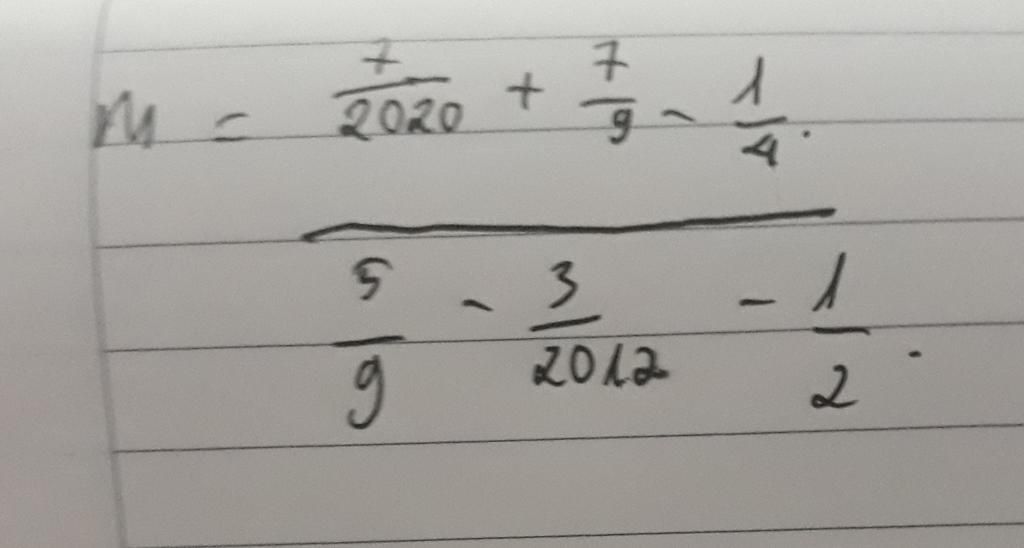 M = 7/2020 + 7/9 - 1/4.
5/9 - 3/2012 - 1/2.